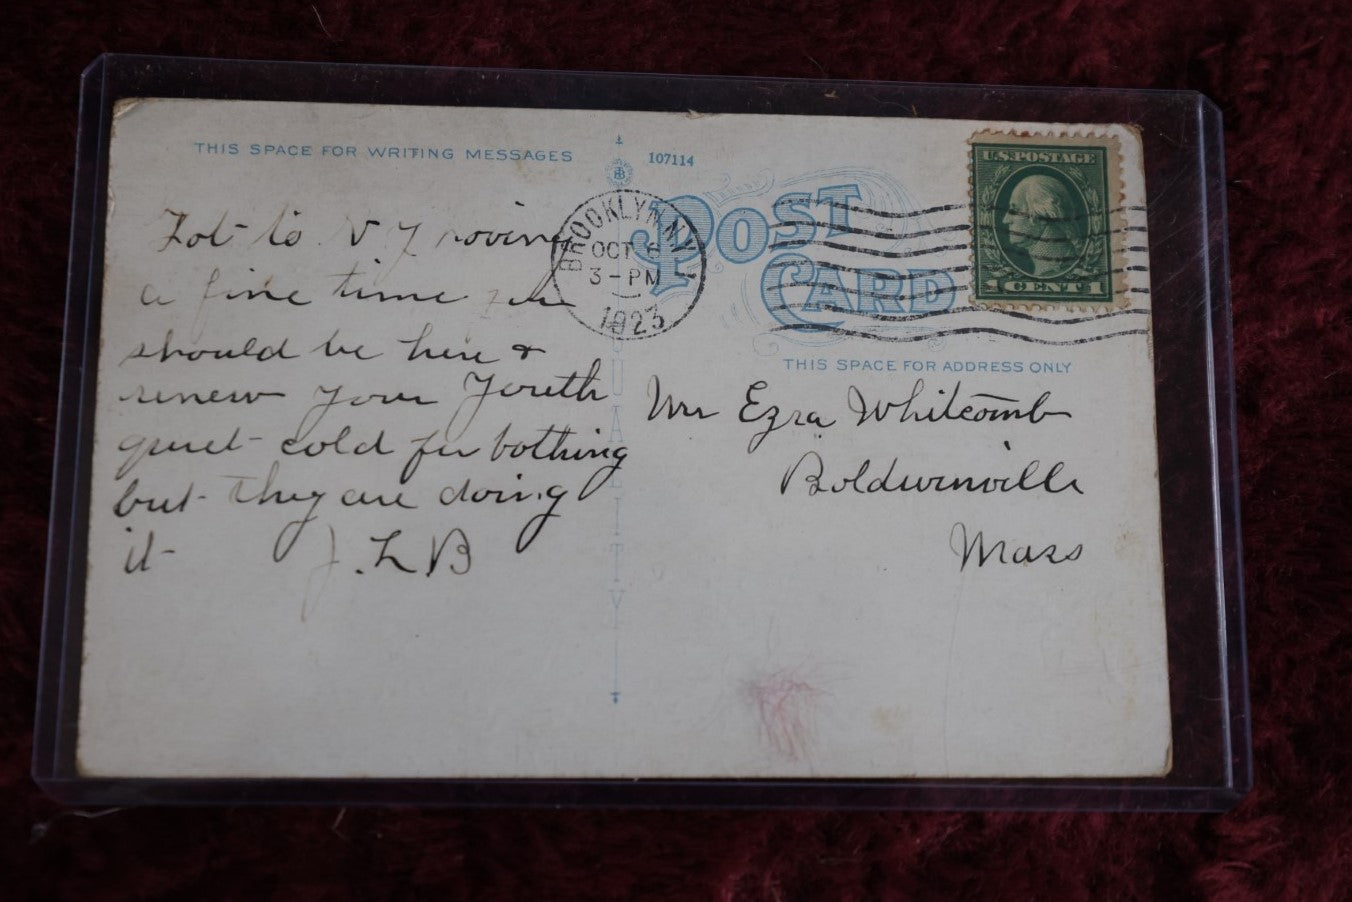 THIS SPACE FOR WRITING MESSAGES
107114
POST
CARD
U.S. POSTAGE
1 CENT 1
BROOKLYN, N.Y.
OCT 6
3 - PM
1923
THIS SPACE FOR ADDRESS ONLY
QUALITY
to N Y
a fine time you
should be here +
renew your Youth
quiet cold for bothing
but they are doing
it J. L B
Mr Ezra Whitcomb
Boldwinville
Mass